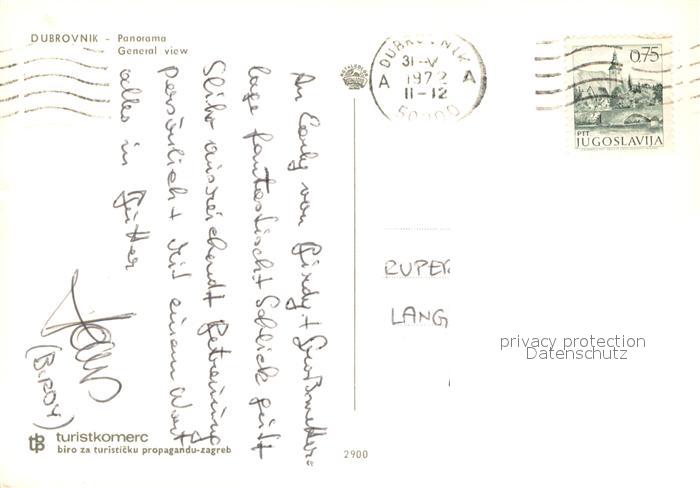 DUBROVNIK - Panorama
General view
DUBROVNIK
A 31-V A
1972
11-12
50000
0,75
PTT
JUGOSLAVIJA
An von Birdy + Großwetter-
lage fantastisch+ Schlick gut+
ausreichend+ Betreuung
persönlich+ mit einem Wort
alles in Butter
(BIRDY)
RUPER
LANG
privacy protection
Datenschutz
turistkomerc
biro za turističku propagandu-zagreb
2900